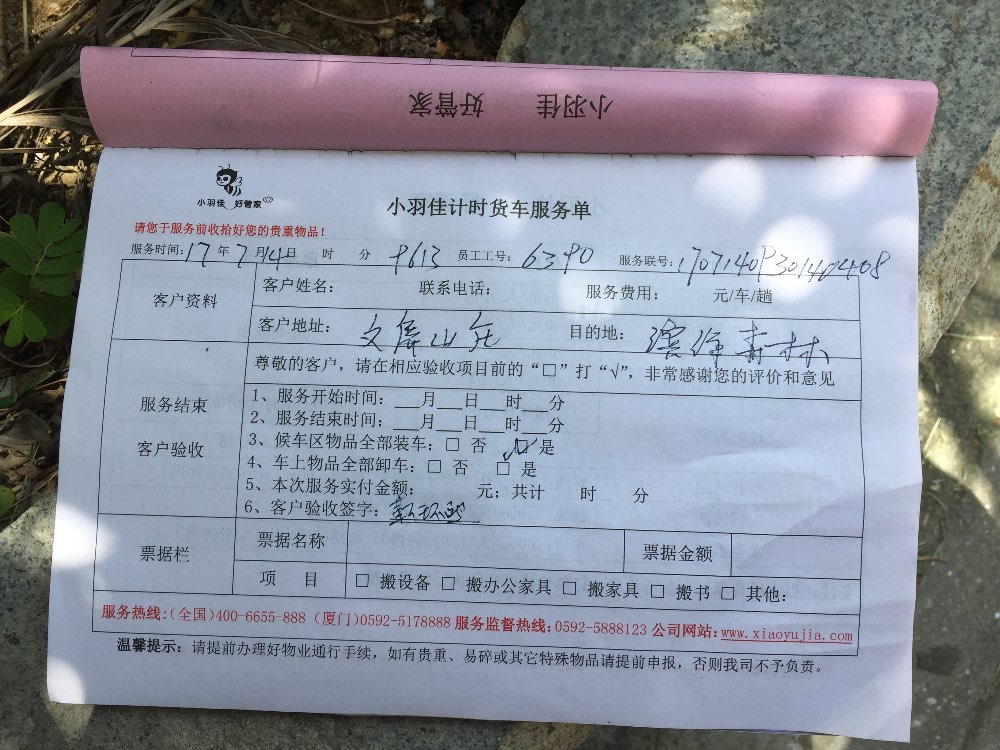 小羽佳 好管家
小羽佳 好管家
小羽佳计时货车服务单
请您于服务前收拾好您的贵重物品！
服务时间：17年7月14日 时 分 员工工号：6390 服务联号：
客户资料
客户姓名： 联系电话： 服务费用： 元/车/趟
客户地址： 目的地：
服务结束
客户验收
尊敬的客户，请在相应验收项目前的“□”打“√”，非常感谢您的评价和意见
1、服务开始时间：___月___日___时___分
2、服务结束时间：___月___日___时___分
3、候车区物品全部装车：□ 否 ☑ 是
4、车上物品全部卸车：□ 否 □ 是
5、本次服务实付金额： 元；共计 时 分
6、客户验收签字：
票据栏
票据名称 票据金额
项 目 □ 搬设备 □ 搬办公家具 □ 搬家具 □ 搬书 □ 其他：
服务热线:(全国)400-6655-888 (厦门)0592-5178888 服务监督热线:0592-5888123 公司网站:www.xiaoyujia.com
温馨提示：请提前办理好物业通行手续，如有贵重、易碎或其它特殊物品请提前申报，否则我司不予负责。